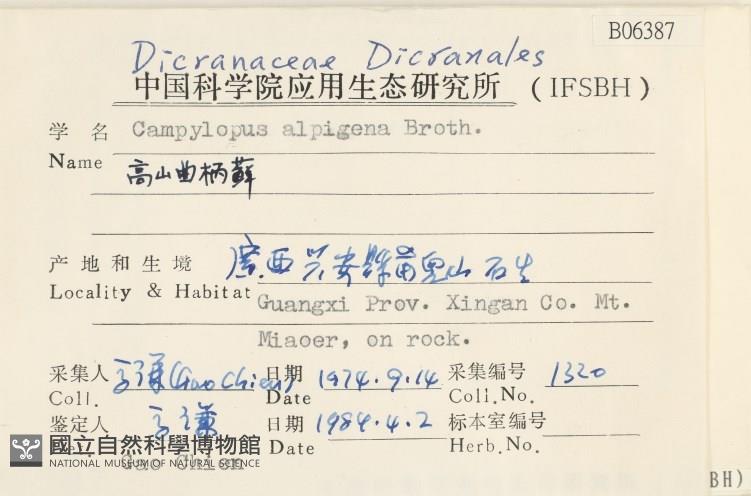 B06387
Dicranaceae Dicranales
中国科学院应用生态研究所 (IFSBH)
学名 Campylopus alpigena Broth.
Name 高山曲柄蘚
产地和生境 广西兴安縣苗兒山 石生
Locality & Habitat Guangxi Prov. Xingan Co. Mt.
Miaoer, on rock.
采集人 高谦(Gao Chien) 日期 1974.9.14 采集编号 1320
Coll. Date Coll.No.
鉴定人 高谦 日期 1984.4.2 标本室编号
Gao Chien Date Herb.No.
國立自然科學博物館
NATIONAL MUSEUM OF NATURAL SCIENCE
BH)